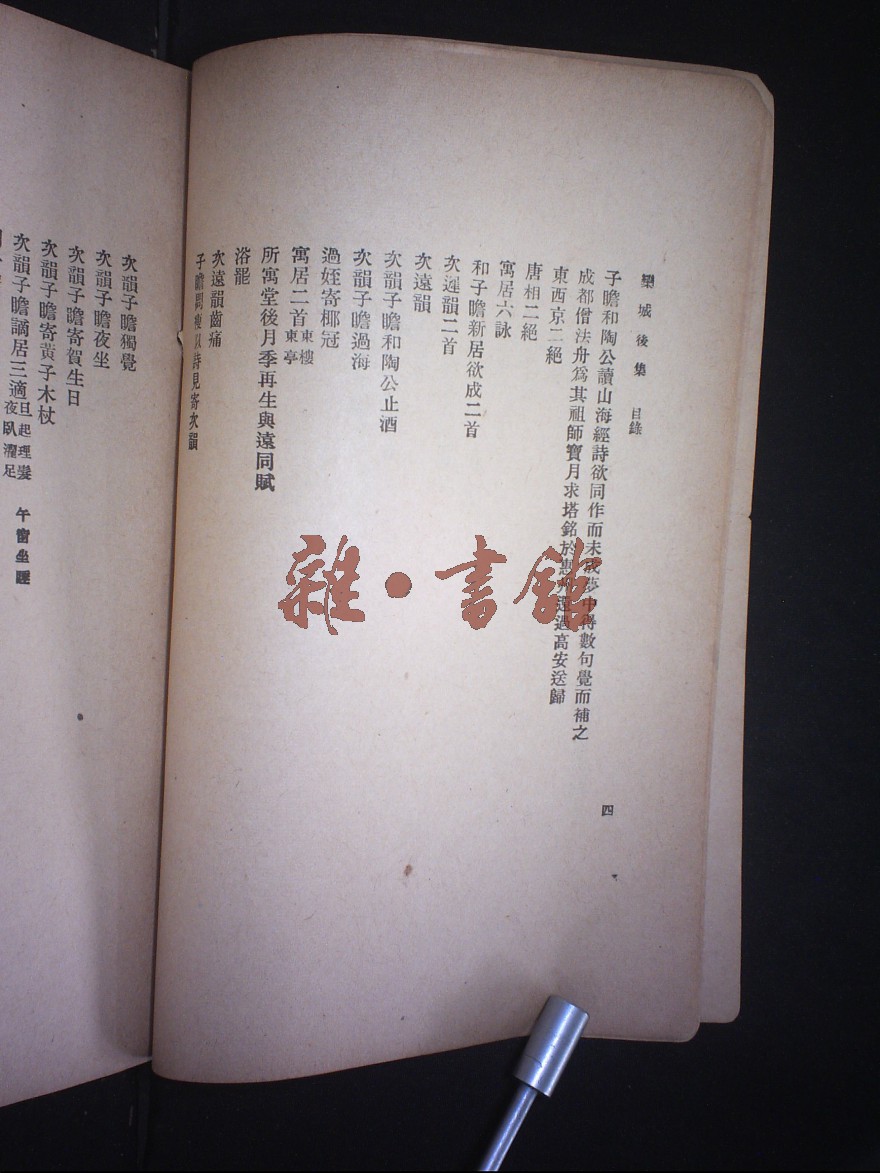 欒城後集 目錄
四
子瞻和陶公讀山海經詩欲同作而未成夢中得數句覺而補之
成都僧法舟為其祖師寶月求塔銘於惠州還過高安送歸
東西京二絕
唐相二絕
寓居六詠
和子瞻新居欲成二首
次遲韻二首
次遠韻
次韻子瞻和陶公止酒
次韻子瞻過海
過姪寄椰冠
寓居二首東樓東亭
所寓堂後月季再生與遠同賦
浴罷
次遠韻齒痛
子瞻聞瘦以詩見寄次韻
次韻子瞻獨覺
次韻子瞻夜坐
次韻子瞻寄賀生日
次韻子瞻寄黃子木杖
次韻子瞻謫居三適旦起理髮 午窗坐睡 夜臥濯足
雜·書館